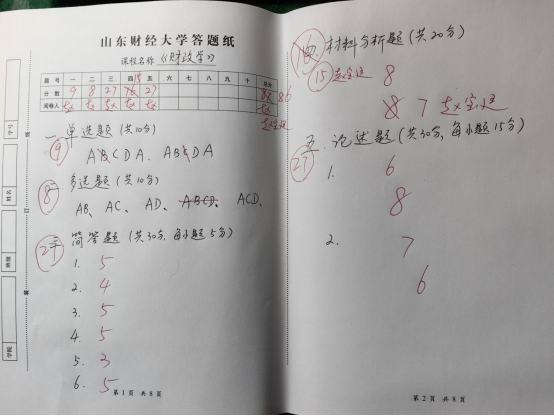 山东财经大学答题纸
课程名称《财政学》
题号 一 二 三 四 五 六 七 八 九 十 总分
分数 9 8 27 15 27 86
阅卷人
一 单选题 (共10分)
9
ABCDA、ABCDA
8
二 多选题 (共10分)
AB、AC、AD、ABCD、ACD、
27
三 简答题 (共30分, 每小题5分)
1. 5
2. 4
3. 5
4. 5
5. 3
6. 5
第 1 页 共 8 页
学号
姓名
班级
学院
装
订
线
四、材料分析题 (共20分)
15 8
8 7
五、论述题 (共30分, 每小题15分)
27
1. 6
8
2. 7
6
第 2 页 共 8 页